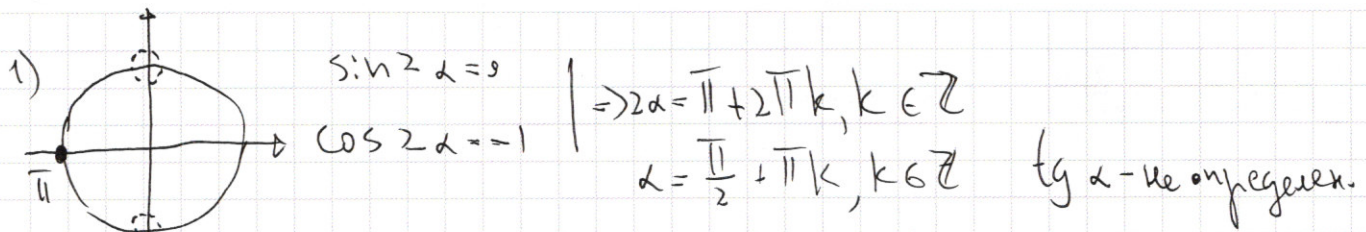 1)
sin 2α = 0
cos 2α = -1
⇒ 2α = π + 2πk, k ∈ ℤ
α = π/2 + πk, k ∈ ℤ
tg α - не определен.
π